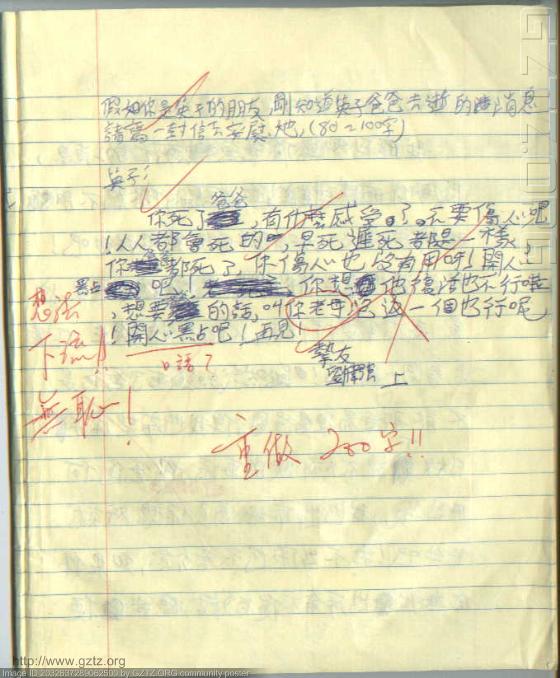 假如你是英子的朋友,剛知道英子爸爸去逝的消息
請寫一封信去安慰她,(80~100字)
英子:
爸爸
你死了,有什麼感受。了。不要傷心吧
!人人都會死的,早死遲死都是一樣,
你都死了,你傷心也沒有用呀!開心
點吧!你想他復活也不行啦
,想要的話,叫你老母泡返一個也行呢
!開心點吧!再見!
摯友
劉偉強 上
想法
下流!!
無恥!
口語?
重做 200字!!
GZTZ.ORG
http://www.gztz.org
Image ID 2032637289062500 by GZTZ.ORG community poster